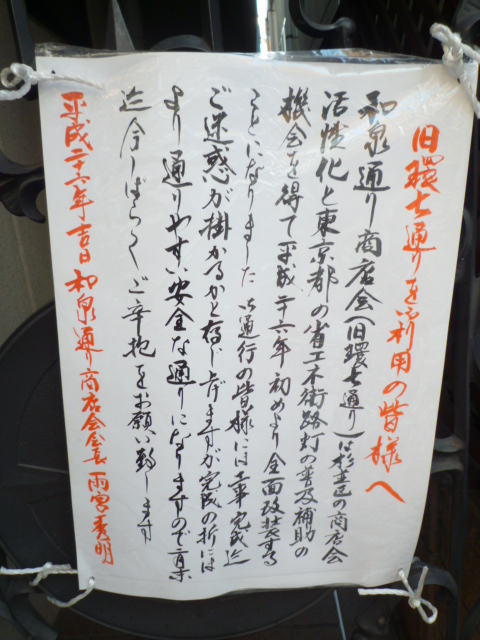 旧環七通りをご利用の皆様へ
和泉通り商店会(旧環七通り)は杉並区の商店会
活性化と東京都の省エネ街路灯の普及補助の
機会を得て平成二十六年初めより全面改装する
ことになりました 御通行の皆様には工事完成迄
ご迷惑が掛かるかと存じ上げますが完成の折には
より通りやすい安全な通りになりますので
迄今しばらくご辛抱をお願い致します
平成二十六年吉日 和泉通り商店会会長 雨宮秀明